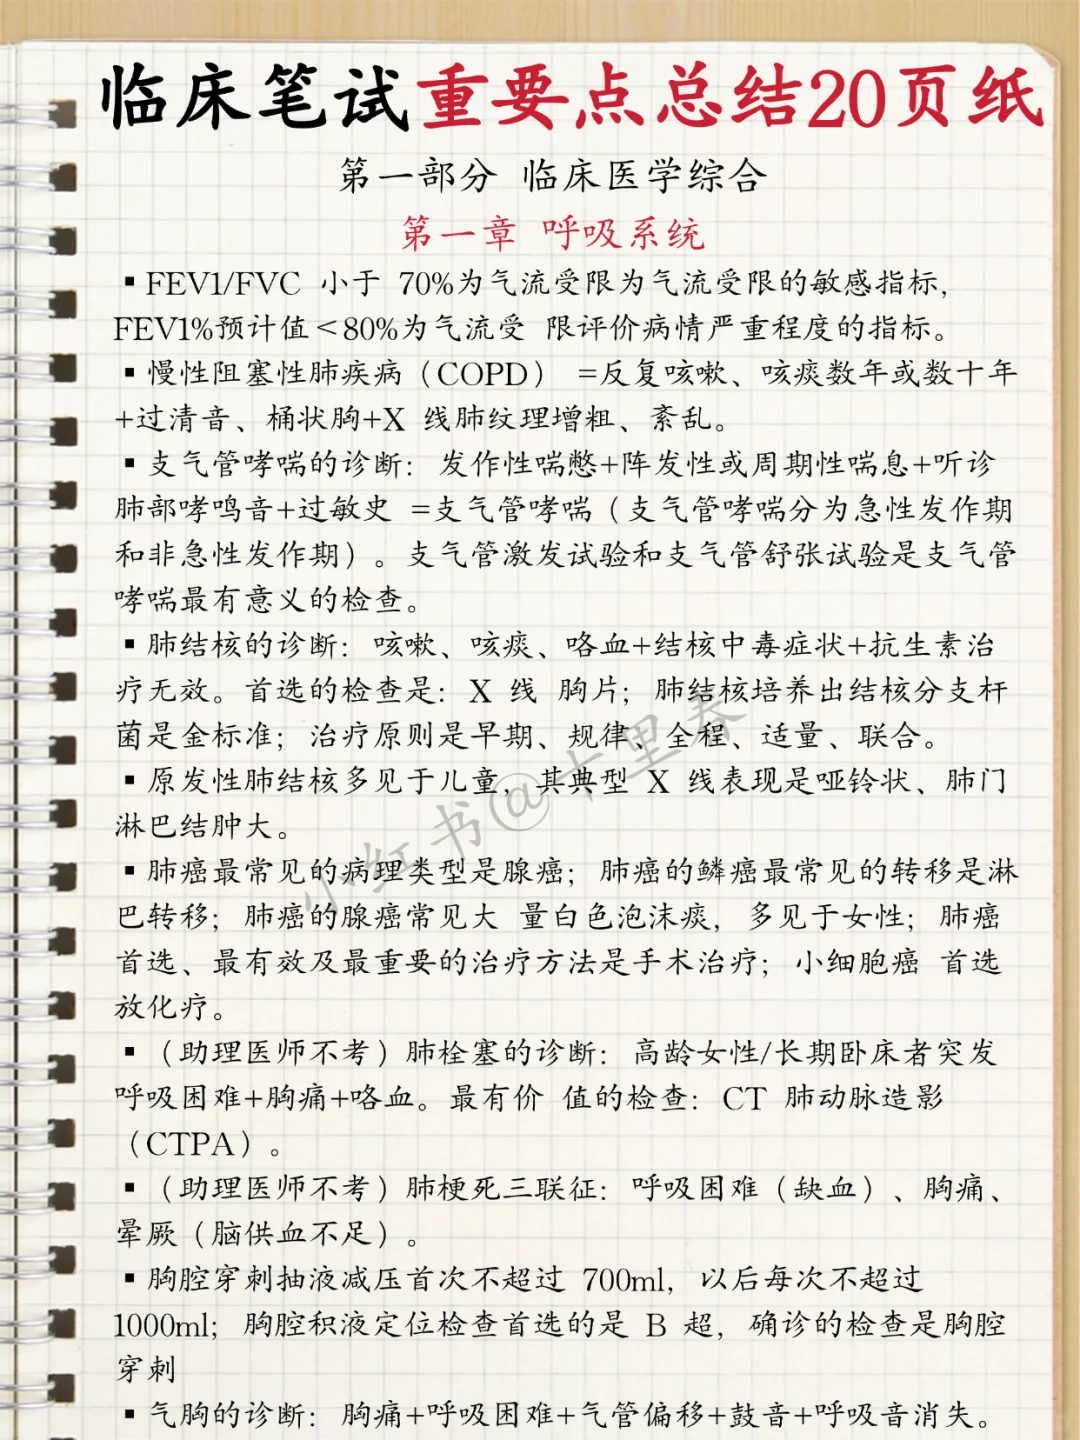 临床笔试重要点总结20页纸
第一部分 临床医学综合
第一章 呼吸系统
▪ FEV1/FVC 小于 70%为气流受限为气流受限的敏感指标，
FEV1%预计值＜80%为气流受 限评价病情严重程度的指标。
▪ 慢性阻塞性肺疾病（COPD） =反复咳嗽、咳痰数年或数十年
+过清音、桶状胸+X 线肺纹理增粗、紊乱。
▪ 支气管哮喘的诊断：发作性喘憋+阵发性或周期性喘息+听诊
肺部哮鸣音+过敏史 =支气管哮喘（支气管哮喘分为急性发作期
和非急性发作期）。支气管激发试验和支气管舒张试验是支气管
哮喘最有意义的检查。
▪ 肺结核的诊断：咳嗽、咳痰、咯血+结核中毒症状+抗生素治
疗无效。首选的检查是：X 线 胸片；肺结核培养出结核分支杆
菌是金标准；治疗原则是早期、规律、全程、适量、联合。
▪ 原发性肺结核多见于儿童，其典型 X 线表现是哑铃状、肺门
淋巴结肿大。
▪ 肺癌最常见的病理类型是腺癌；肺癌的鳞癌最常见的转移是淋
巴转移；肺癌的腺癌常见大 量白色泡沫痰，多见于女性；肺癌
首选、最有效及最重要的治疗方法是手术治疗；小细胞癌 首选
放化疗。
▪ （助理医师不考）肺栓塞的诊断：高龄女性/长期卧床者突发
呼吸困难+胸痛+咯血。最有价 值的检查：CT 肺动脉造影
（CTPA）。
▪ （助理医师不考）肺梗死三联征：呼吸困难（缺血）、胸痛、
晕厥（脑供血不足）。
▪ 胸腔穿刺抽液减压首次不超过 700ml，以后每次不超过
1000ml；胸腔积液定位检查首选的是 B 超，确诊的检查是胸腔
穿刺
▪ 气胸的诊断：胸痛+呼吸困难+气管偏移+鼓音+呼吸音消失。
小红书@十里春